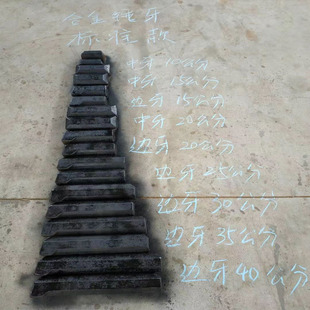 合金钻牙
标准款
中牙10公分
中牙15公分
边牙15公分
中牙20公分
边牙20公分
边牙25公分
边牙30公分
边牙35公分
边牙40公分